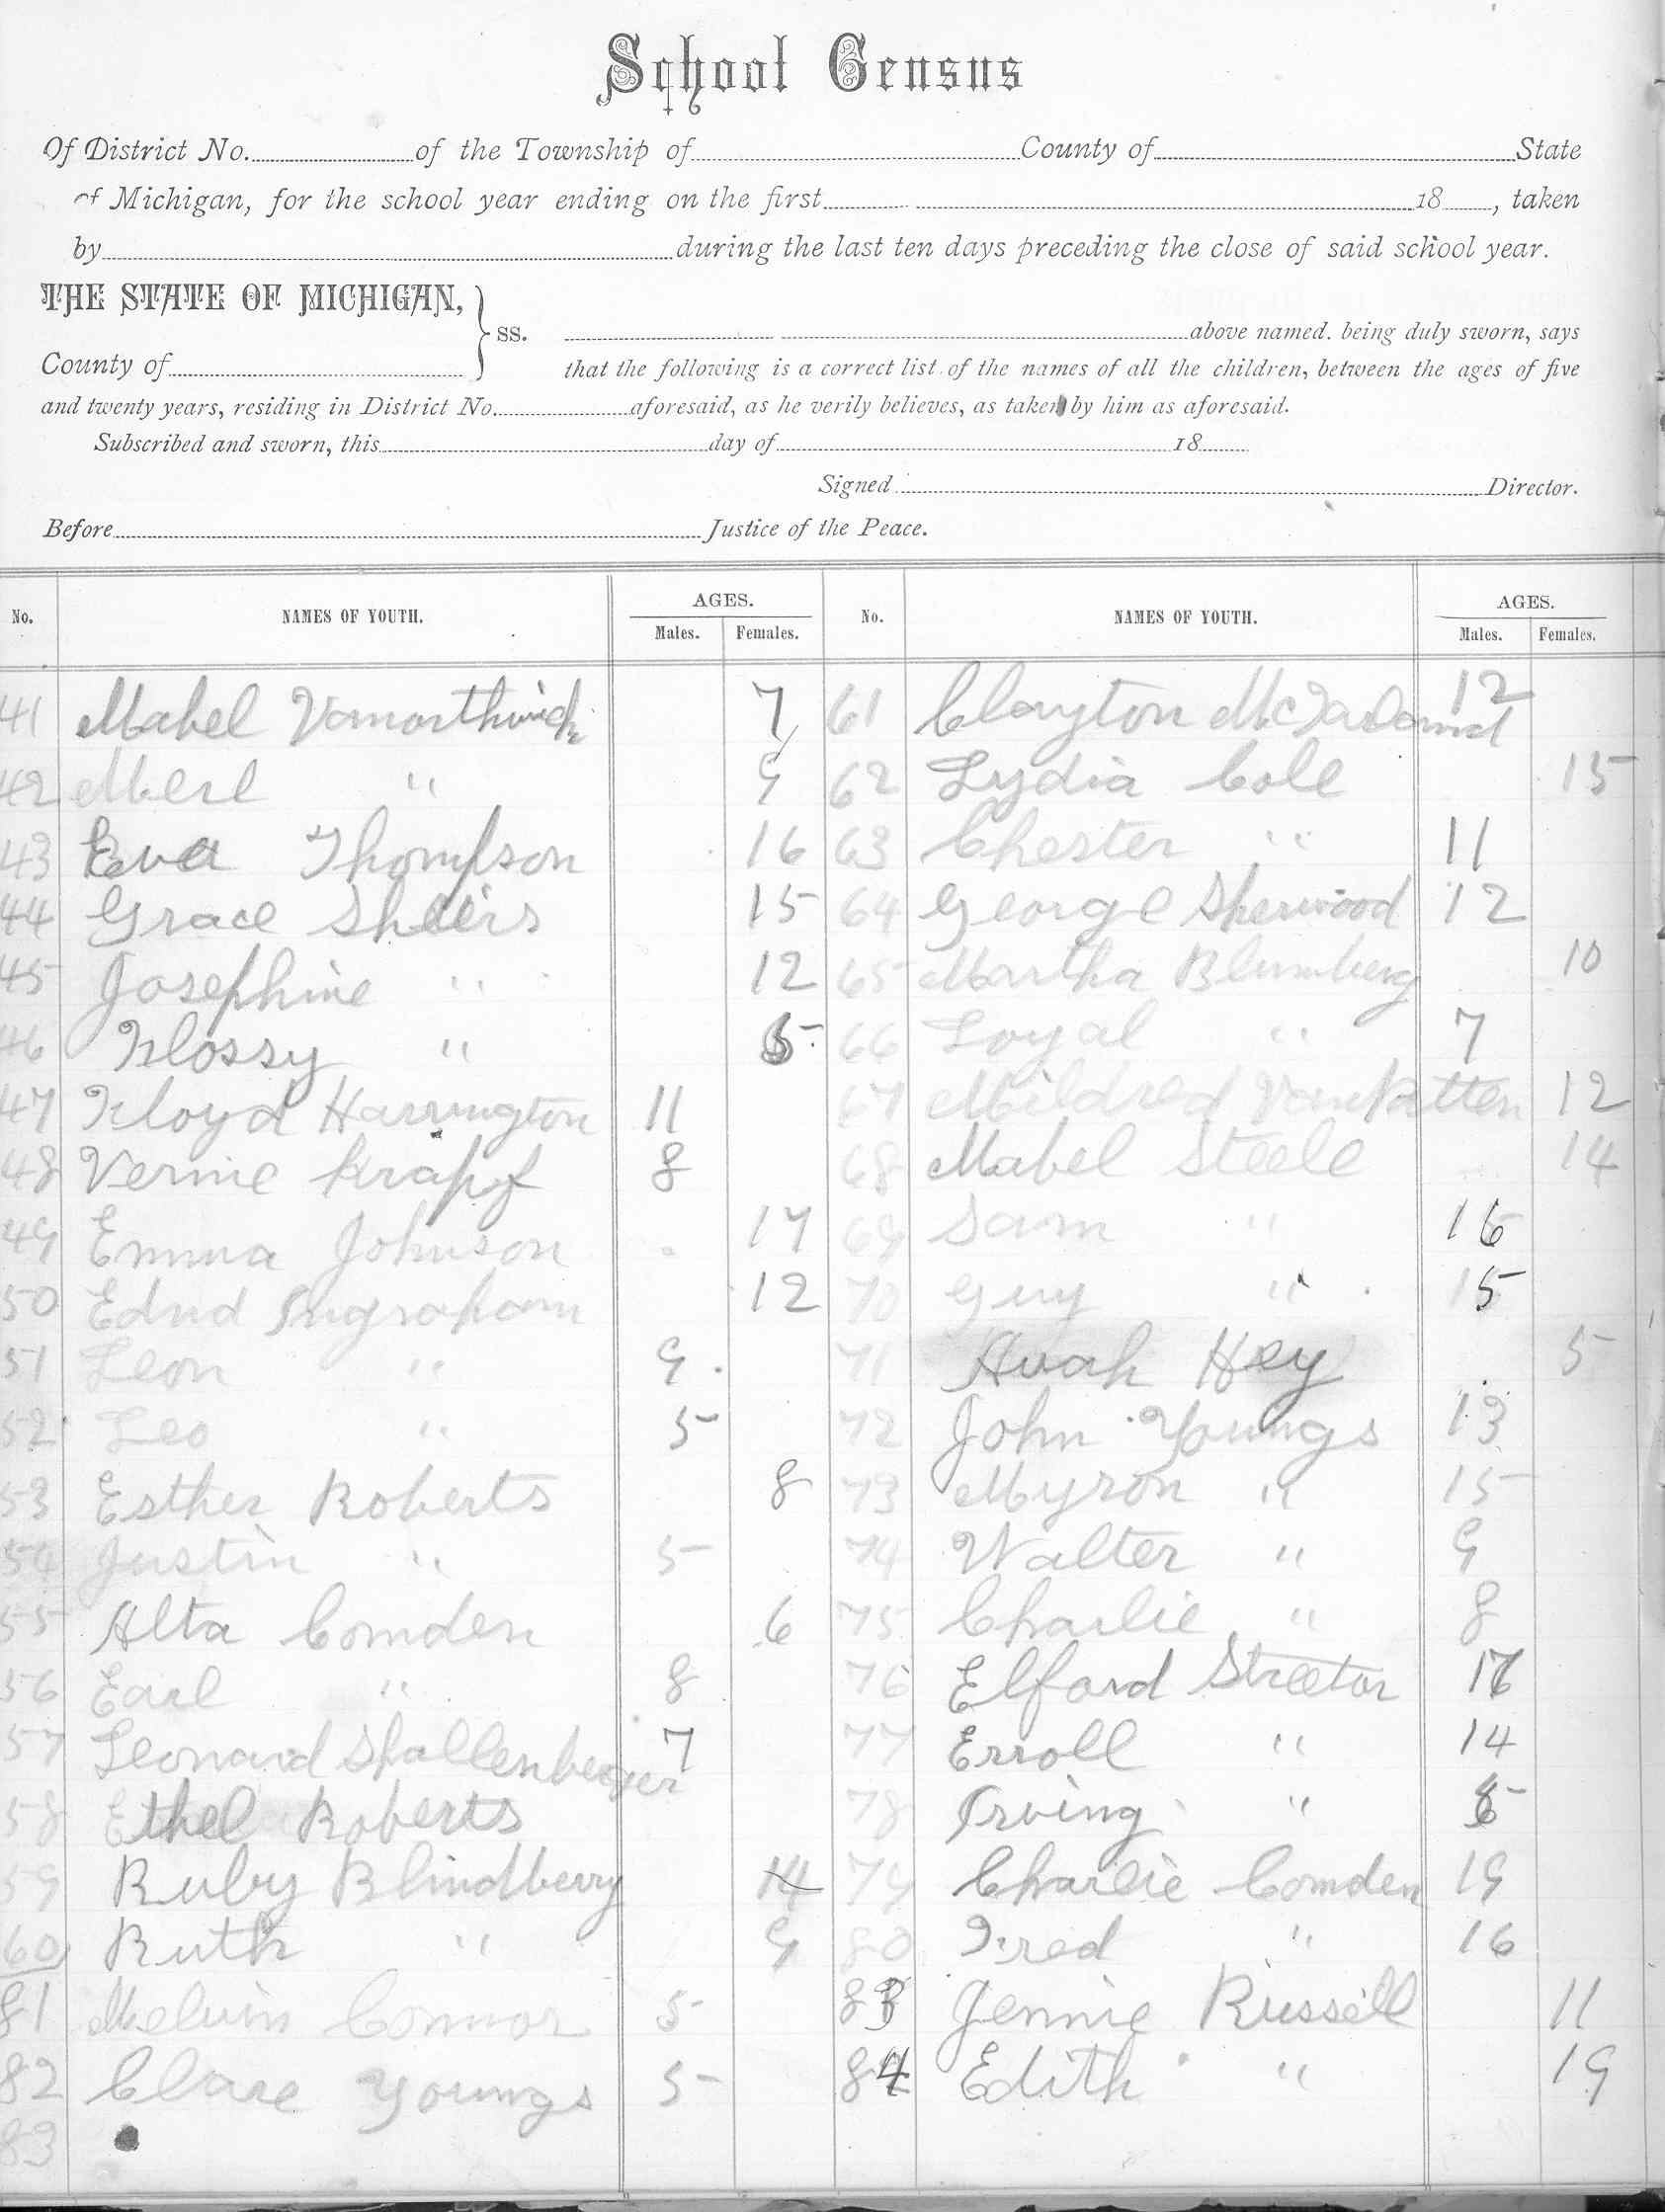 School Census
Of District No. of the Township of County of State
of Michigan, for the school year ending on the first 18 , taken
by during the last ten days preceding the close of said school year.
THE STATE OF MICHIGAN,
ss.
above named. being duly sworn, says
County of
that the following is a correct list of the names of all the children, between the ages of five
and twenty years, residing in District No. aforesaid, as he verily believes, as taken by him as aforesaid.
Subscribed and sworn, this day of 18
Signed Director.
Before Justice of the Peace.
No. NAMES OF YOUTH. AGES. Males. Females. No. NAMES OF YOUTH. AGES. Males. Females.
41 Mabel 7
42 Merl " 9
43 Eva Thompson 16
44 Grace Sheirs 15
45 Josephine " 12
46 Flossy " 5
47 Floyd Harrington 11
48 Vernie Krapf 8
49 Emma Johnson 17
50 Ednd Ingraham 12
51 Leon " 9
52 Leo " 5
53 Esther Roberts 8
54 Justin " 5
55 Alta Comden 6
56 Earl " 8
57 Leonard Shallenberger 7
58 Ethel Roberts
59 Ruby Blindberry 14
60 Ruth " 9
81 Melvin Connor 5
82 Clare Youngs 5
83
61 Clayton 12
62 Lydia Cole 15
63 Chester " 11
64 George Sherwood 12
65 Martha Blumberg 10
66 Loyal " 7
67 Mildred VanPatten 12
68 Mabel Steele 14
69 Sam " 16
70 Guy " 15
71 Avah Hey 5
72 John Youngs 13
73 Myron " 15
74 Walter " 9
75 Charlie " 8
76 Elford Streetor
77 Erroll " 14
78 Irving "
79 Charlie Comden 19
80 Fred " 16
83 Jennie Russell 11
84 Edith " 19